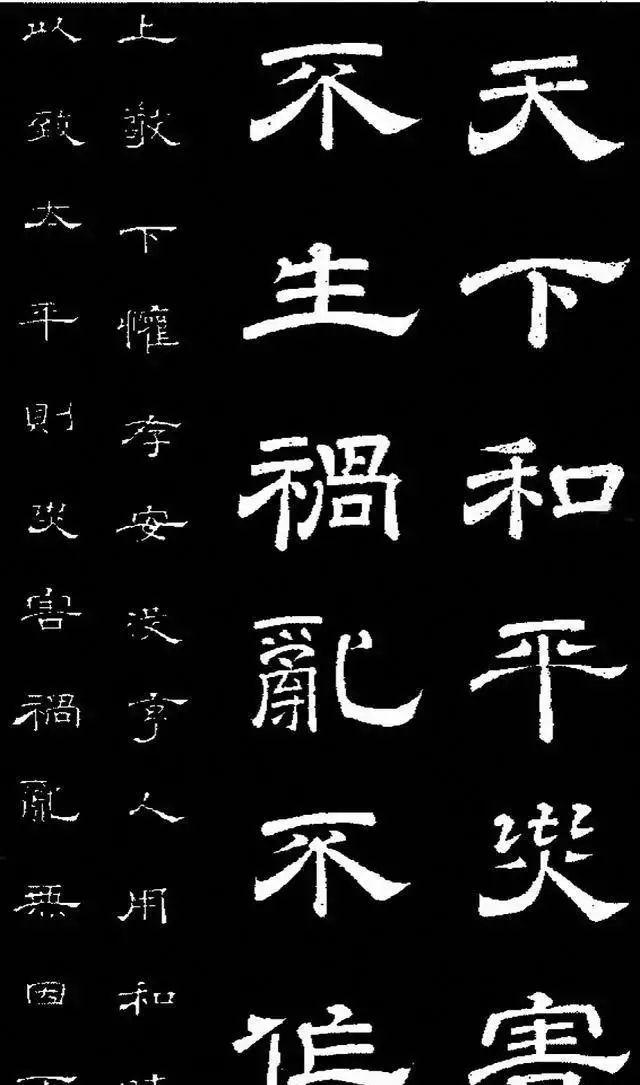 天下和平災害
不生禍亂不作
上敬下懽存安沒享人用和
以致太平則災害禍亂無因